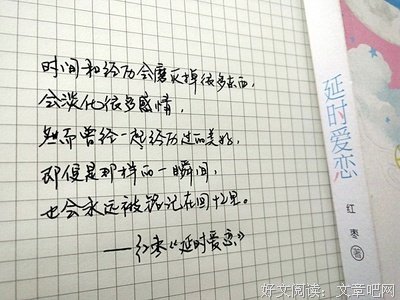 时间和经历会磨灭掉很多东西，
会淡化很多感情，
然而曾经一起经历过的美好，
即便是那样的一瞬间，
也会永远被铭记在回忆里。
——红枣《延时爱恋》
延时爱恋
红枣 著
好文阅读：文章吧网